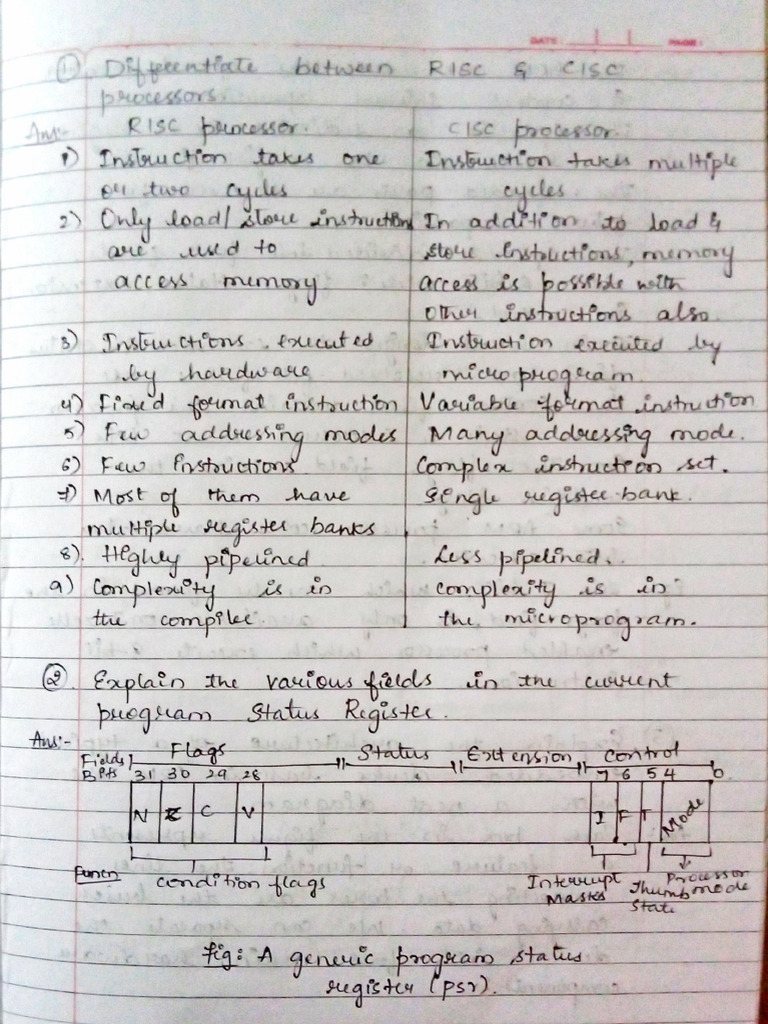 DATE: PAGE:
① Differentiate between RISC & CISC
processors.
Ans:- RISC processor. CISC processor.
1) Instruction takes one Instruction takes multiple
or two cycles cycles
2) Only load/store instructions In addition to load &
are used to store instructions, memory
access memory access is possible with
other instructions also
3) Instructions executed Instruction executed by
by hardware microprogram
4) Fixed format instruction Variable format instruction
5) Few addressing modes Many addressing mode.
6) Few Instructions Complex instruction set.
7) Most of them have Single register bank.
multiple register banks
8). Highly pipelined Less pipelined.
9) Complexity is in complexity is in
the compiler the microprogram.
②. Explain the various fields in the current
program Status Register.
Ans:-
Fields Flags Status Extension control
Bits 31 30 29 28 7 6 5 4 0
N Z C V I F T Mode
Funcn condition flags Interrupt Masks Thumb State Processor mode
Fig: A generic program status
register (psr).